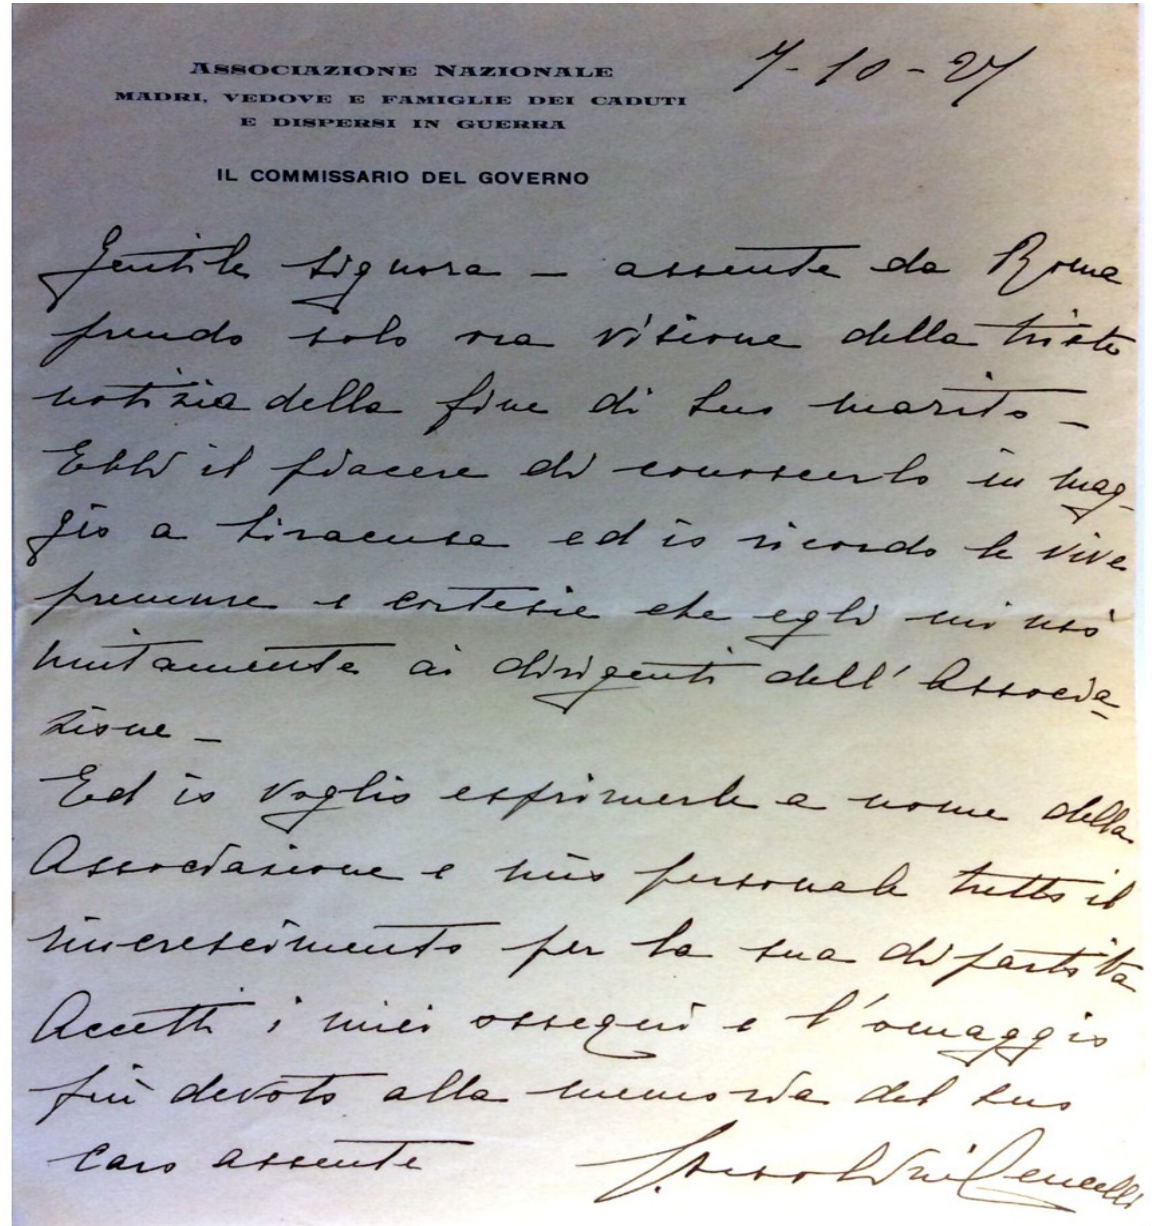 ASSOCIAZIONE NAZIONALE
MADRI, VEDOVE E FAMIGLIE DEI CADUTI
E DISPERSI IN GUERRA
IL COMMISSARIO DEL GOVERNO
7-10-27
Gentile Signora - assente da Roma
prendo solo ora visione della triste
notizia della fine di Suo marito -
Ebbi il piacere di conoscerlo in mag-
gio a Siracusa ed io ricordo le vive
premure e cortesie che egli mi usò
unitamente ai dirigenti dell'Associa-
zione -
Ed io voglio esprimerle a nome della
Associazione e mio personale tutto il
rincrescimento per la sua dipartita
Accetti i miei ossequi e l'omaggio
più devoto alla memoria del suo
caro assente
Cencelli